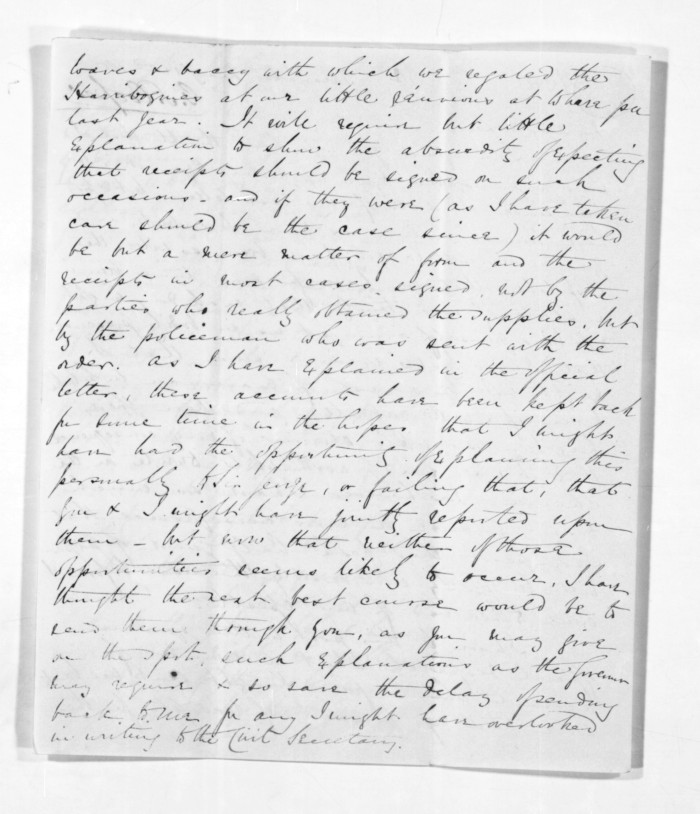 loaves & baccy with which we regaled the
Harribogines at our little réunions at Whare pu
last year. It will require but little
Explanation to show the absurdity of Expecting
that receipts should be signed on such
occasions - and if they were (as I have taken
care should be the case since) it would
be but a mere matter of form and the
receipts in most cases signed, not by the
parties who really obtained the supplies, but
by the policeman who was sent with the
order. As I have Explained in the Official
letter, these accounts have been kept back
for some time in the hopes that I might
have had the opportunity of Explaining this
personally to Sir George, or failing that, that
you & I might have jointly reported upon
them - but now that neither of those
opportunities seems likely to occur, I have
thought the next best course would be to
send them through you, as you may give
on the spot, such Explanations as the Governor
may require & so save the delay of sending
back to me for any I might have overlooked
in writing to the Civil Secretary.